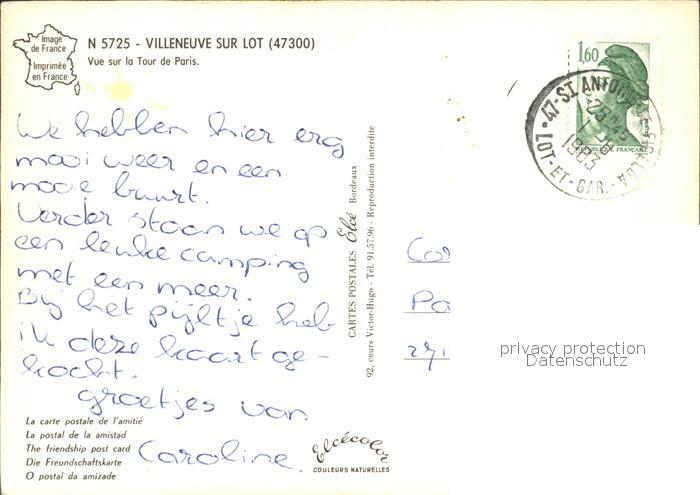 Image
de France
Imprimée
en France
N 5725 - VILLENEUVE SUR LOT (47300)
Vue sur la Tour de Paris.
1,60
RÉPUBLIQUE FRANÇAISE
47-ST ANTOINE
1983
LOT-ET-GAR.
We hebben hier erg
mooi weer en een
mooie buurt.
Verder staan we op
een leuke camping
met een meer.
Bij het pijltje heb
ik deze kaart ge-
kocht.
Groetjes van
Caroline.
CARTES POSTALES Elcé Bordeaux
92, cours Victor-Hugo - Tél. 91.57.96 - Reproduction interdite
Co
Pa
privacy protection
Datenschutz
La carte postale de l'amitié
La postal de la amistad
The friendship post card
Die Freundschaftskarte
O postal da amizade
Elcécolor
COULEURS NATURELLES